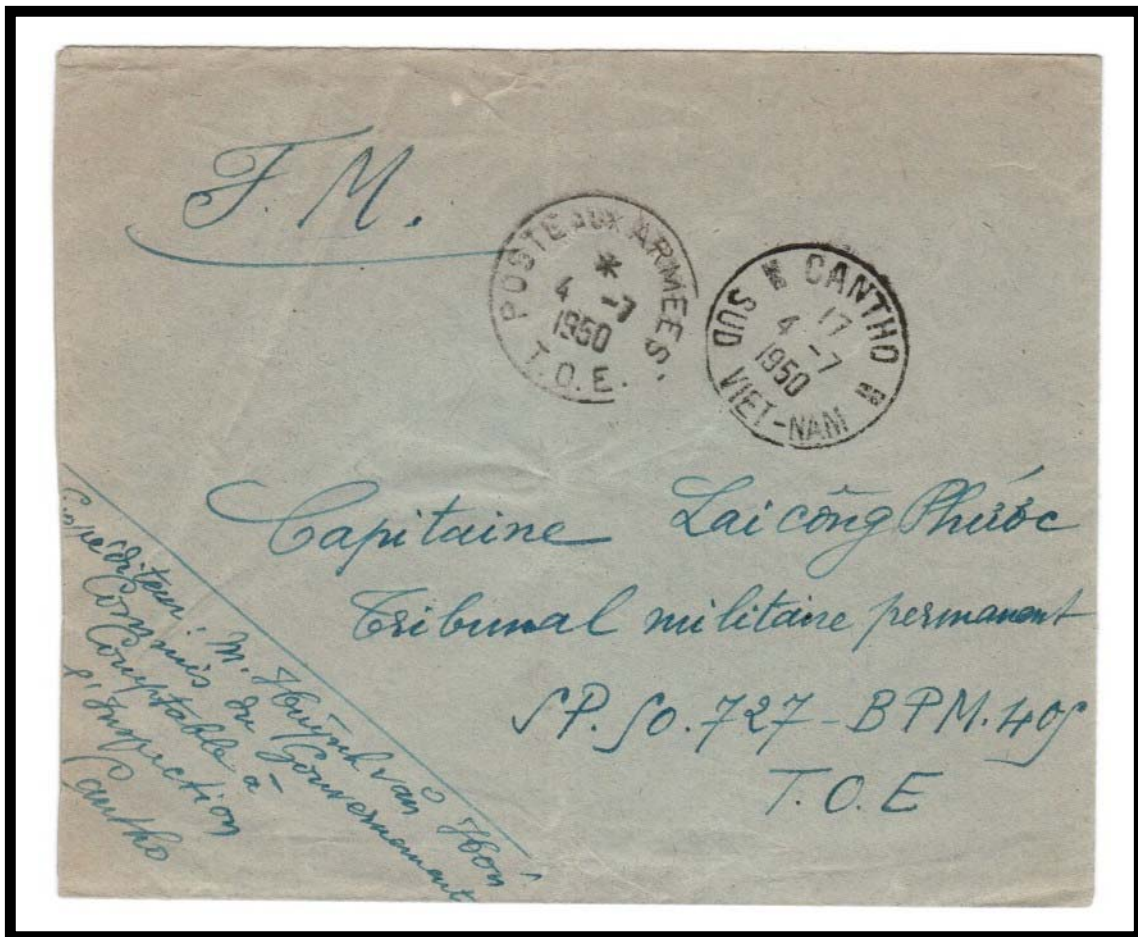 F. M.
POSTE AUX ARMEES.
*
4 -7
1950
T.O.E.
CANTHO
17
4 -7
1950
SUD VIET-NAM
Capitaine Lai công Phước
Tribunal militaire permanent
SP. 50.727 - BPM. 405
T.O.E
Expéditeur: M. Huỳnh văn
Commis du Gouvernement
Comptable à
l'Inspection
Cantho